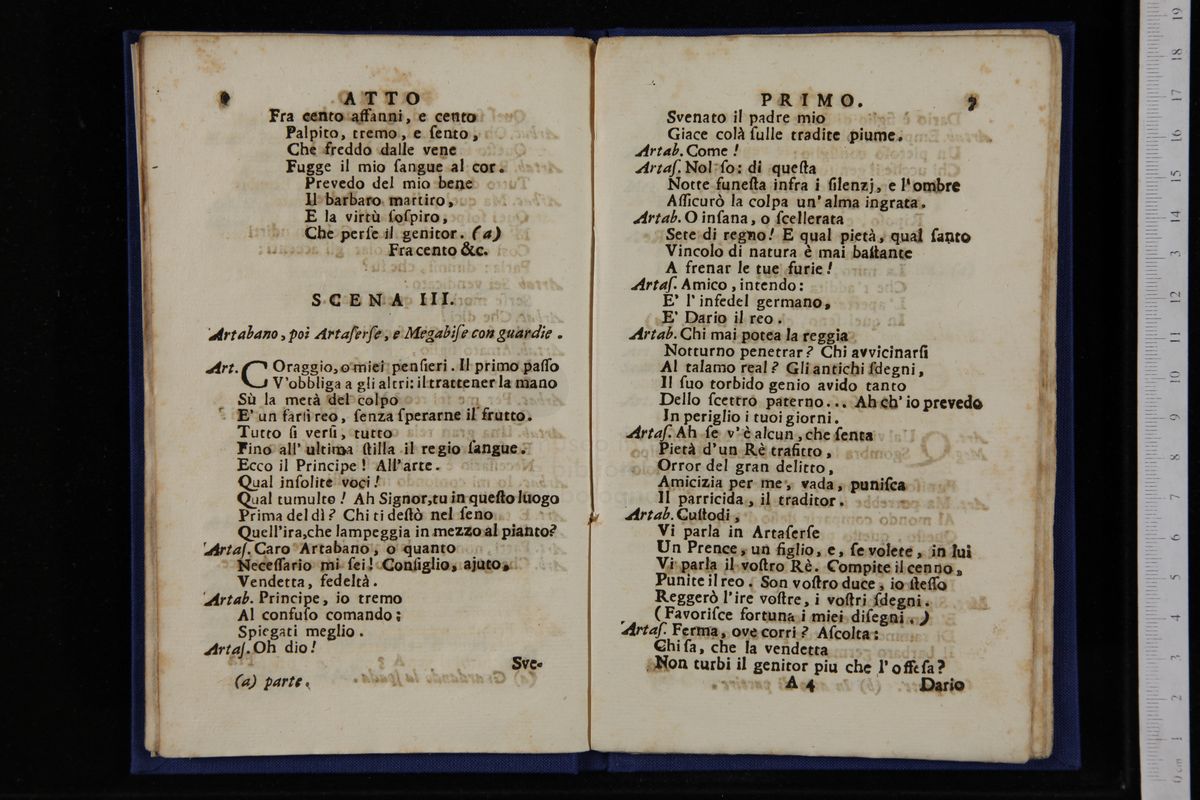 ATTO
Fra cento affanni, e cento
Palpito, tremo, e ſento,
Che freddo dalle vene
Fugge il mio ſangue al cor.
Prevedo del mio bene
Il barbaro martiro,
E la virtù ſoſpiro,
Che perſe il genitor. (a)
Fra cento &c.
SCENA III.
Artabano, poi Artaſerſe, e Megabiſe con guardie.
Art. COraggio, o miei penſieri. Il primo paſſo
V'obbliga a gli altri: il trattener la mano
Sù la metà del colpo
E' un farſi reo, ſenza ſperarne il frutto.
Tutto ſi verſi, tutto
Fino all' ultima ſtilla il regio ſangue.
Ecco il Principe! All'arte.
Qual inſolite voci!
Qual tumulto! Ah Signor, tu in queſto luogo
Prima del dì? Chi ti deſtò nel ſeno
Quell'ira, che lampeggia in mezzo al pianto?
Artaſ. Caro Artabano, o quanto
Neceſſario mi ſei! Conſiglio, ajuto,
Vendetta, fedeltà.
Artab. Principe, io tremo
Al confuſo comando;
Spiegati meglio.
Artaſ. Oh dio!
Sve-
(a) parte.
PRIMO. 9
Svenato il padre mio
Giace colà ſulle tradite piume.
Artab. Come!
Artaſ. Nol ſo: di queſta
Notte funeſta infra i ſilenzj, e l'ombre
Aſſicurò la colpa un'alma ingrata.
Artab. O inſana, o ſcellerata
Sete di regno! E qual pietà, qual ſanto
Vincolo di natura è mai baſtante
A frenar le tue furie!
Artaſ. Amico, intendo:
E' l'infedel germano,
E' Dario il reo.
Artab. Chi mai potea la reggia
Notturno penetrar? Chi avvicinarſi
Al talamo real? Gli antichi ſdegni,
Il ſuo torbido genio avido tanto
Dello ſcettro paterno... Ah ch'io prevedo
In periglio i tuoi giorni.
Artaſ. Ah ſe v'è alcun, che ſenta
Pietà d'un Rè trafitto,
Orror del gran delitto,
Amicizia per me, vada, puniſca
Il parricida, il traditor.
Artab. Cuſtodi,
Vi parla in Artaſerſe
Un Prence, un figlio, e, ſe volete, in lui
Vi parla il voſtro Rè. Compite il cenno,
Punite il reo. Son voſtro duce, io ſteſſo
Reggerò l'ire voſtre, i voſtri ſdegni.
(Favoriſce fortuna i miei diſegni.)
Artaſ. Ferma, ove corri? Aſcolta:
Chi ſa, che la vendetta
Non turbi il genitor piu che l'offeſa?
A 4 Dario